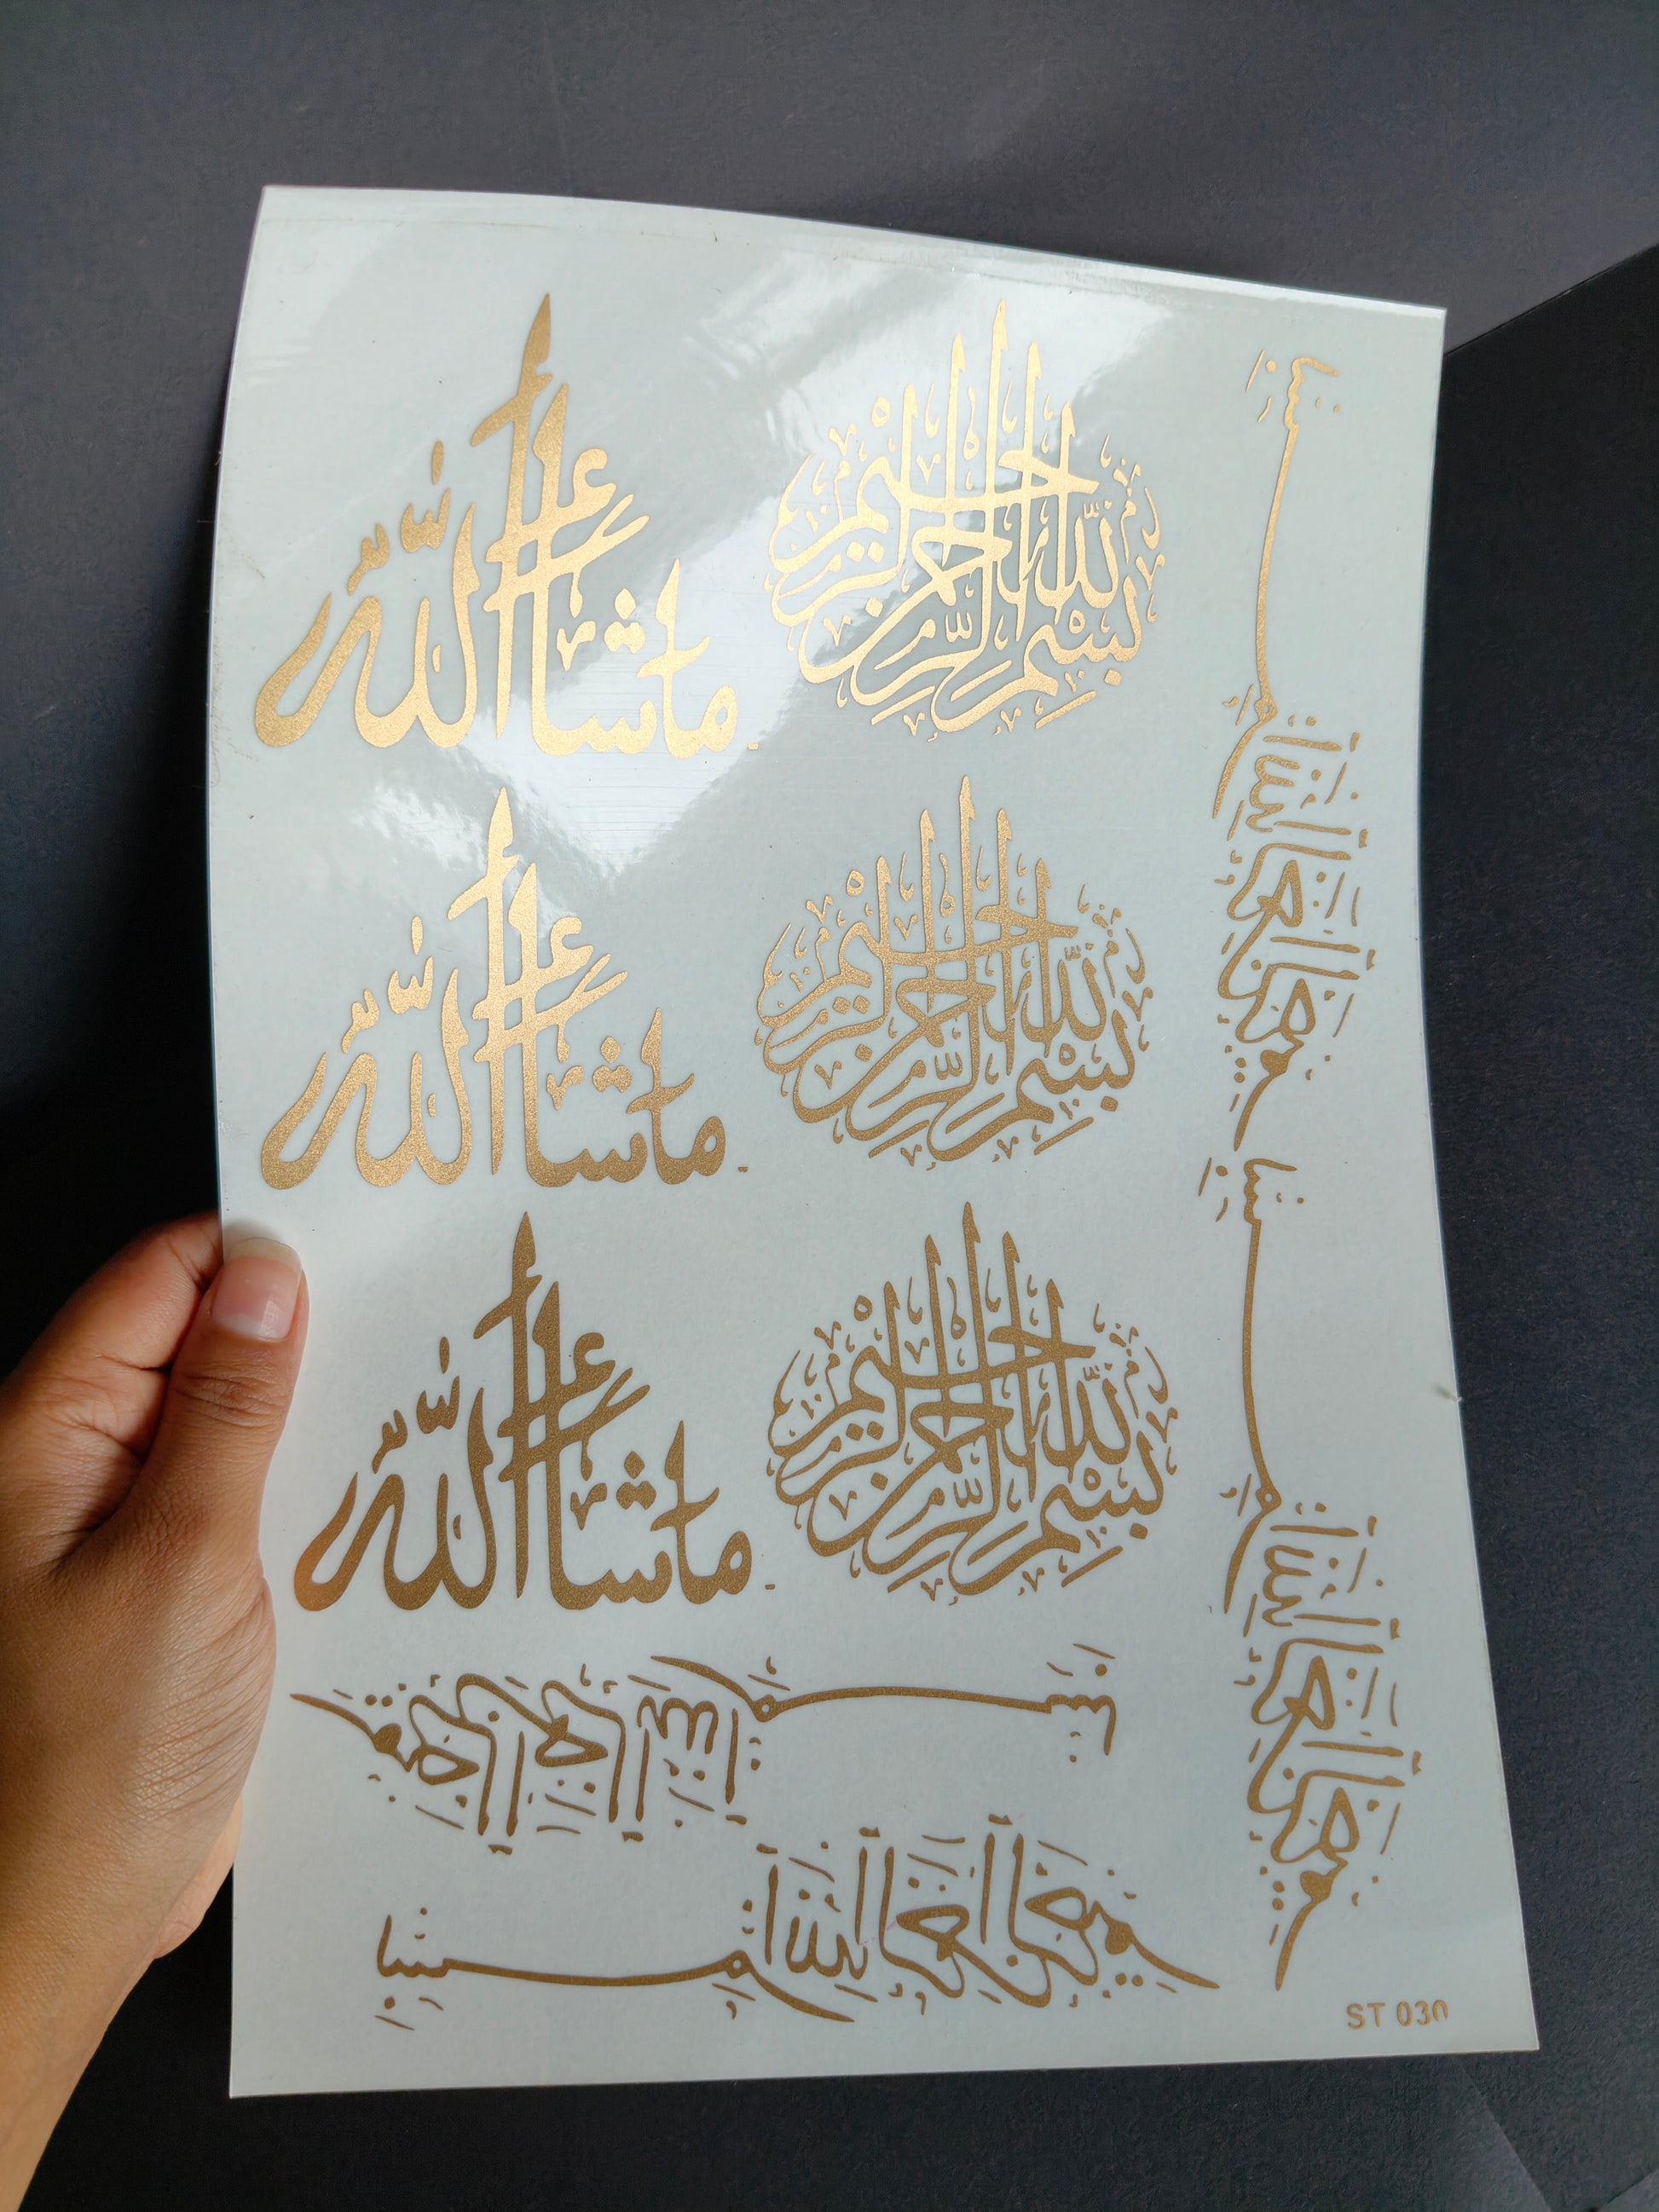 ما شاء الله
بسم الله الرحمن الرحيم
ما شاء الله
بسم الله الرحمن الرحيم
ما شاء الله
بسم الله الرحمن الرحيم
بسم الله الرحمن الرحيم
بسم الله الرحمن الرحيم
بسم الله الرحمن الرحيم
بسم الله الرحمن الرحيم
ST 030